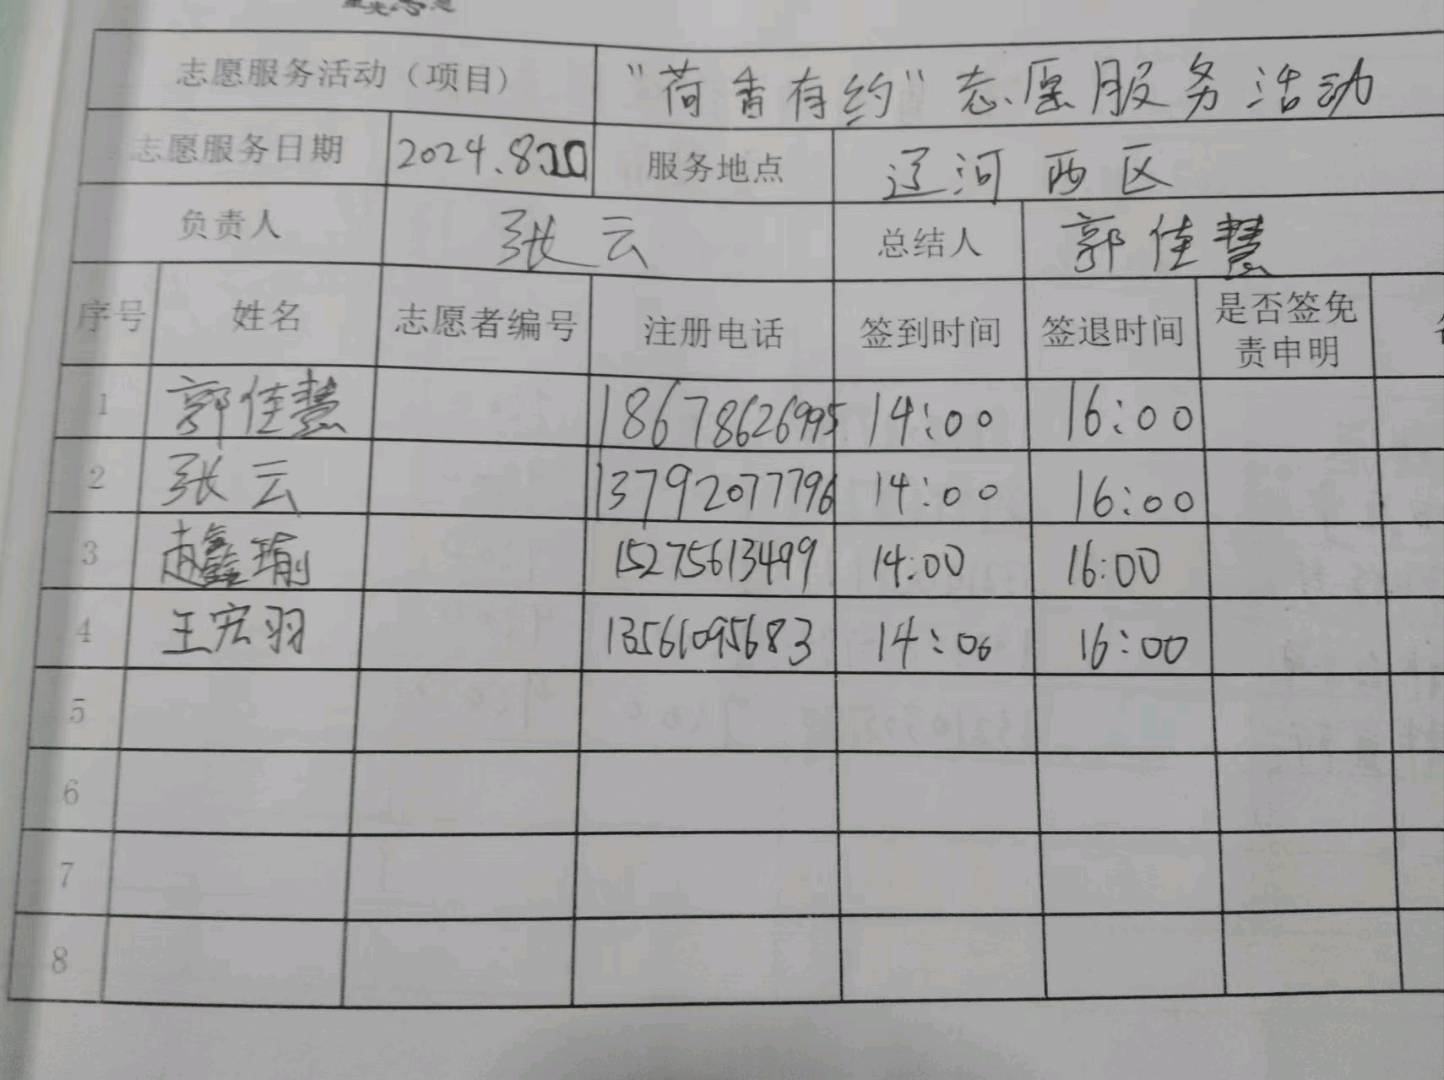 志愿服务活动（项目） "荷香有约"志愿服务活动
志愿服务日期 2024.8.20 服务地点 辽河西区
负责人 张云 总结人 郭佳慧
序号 姓名 志愿者编号 注册电话 签到时间 签退时间 是否签免责申明
1 郭佳慧 18678626995 14:00 16:00
2 张云 13792077796 14:00 16:00
3 赵鑫瑜 15275613499 14:00 16:00
4 王宏羽 13561095683 14:00 16:00
5
6
7
8